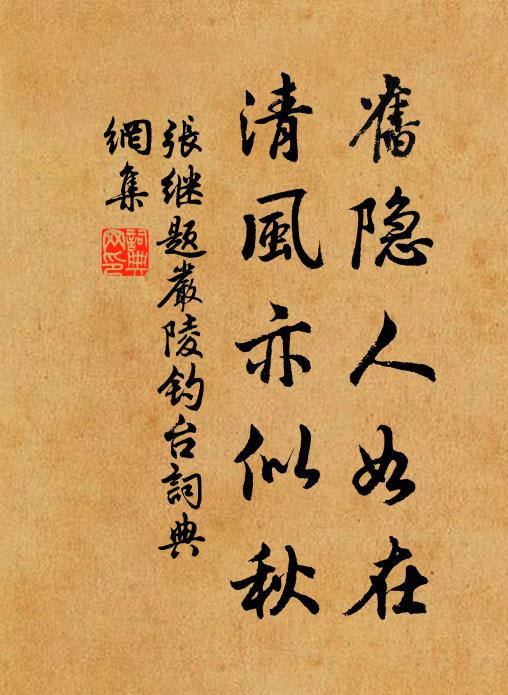 舊隐人如在
清風亦似秋
張继题嚴陵钓台詞典
網集
詞典網印